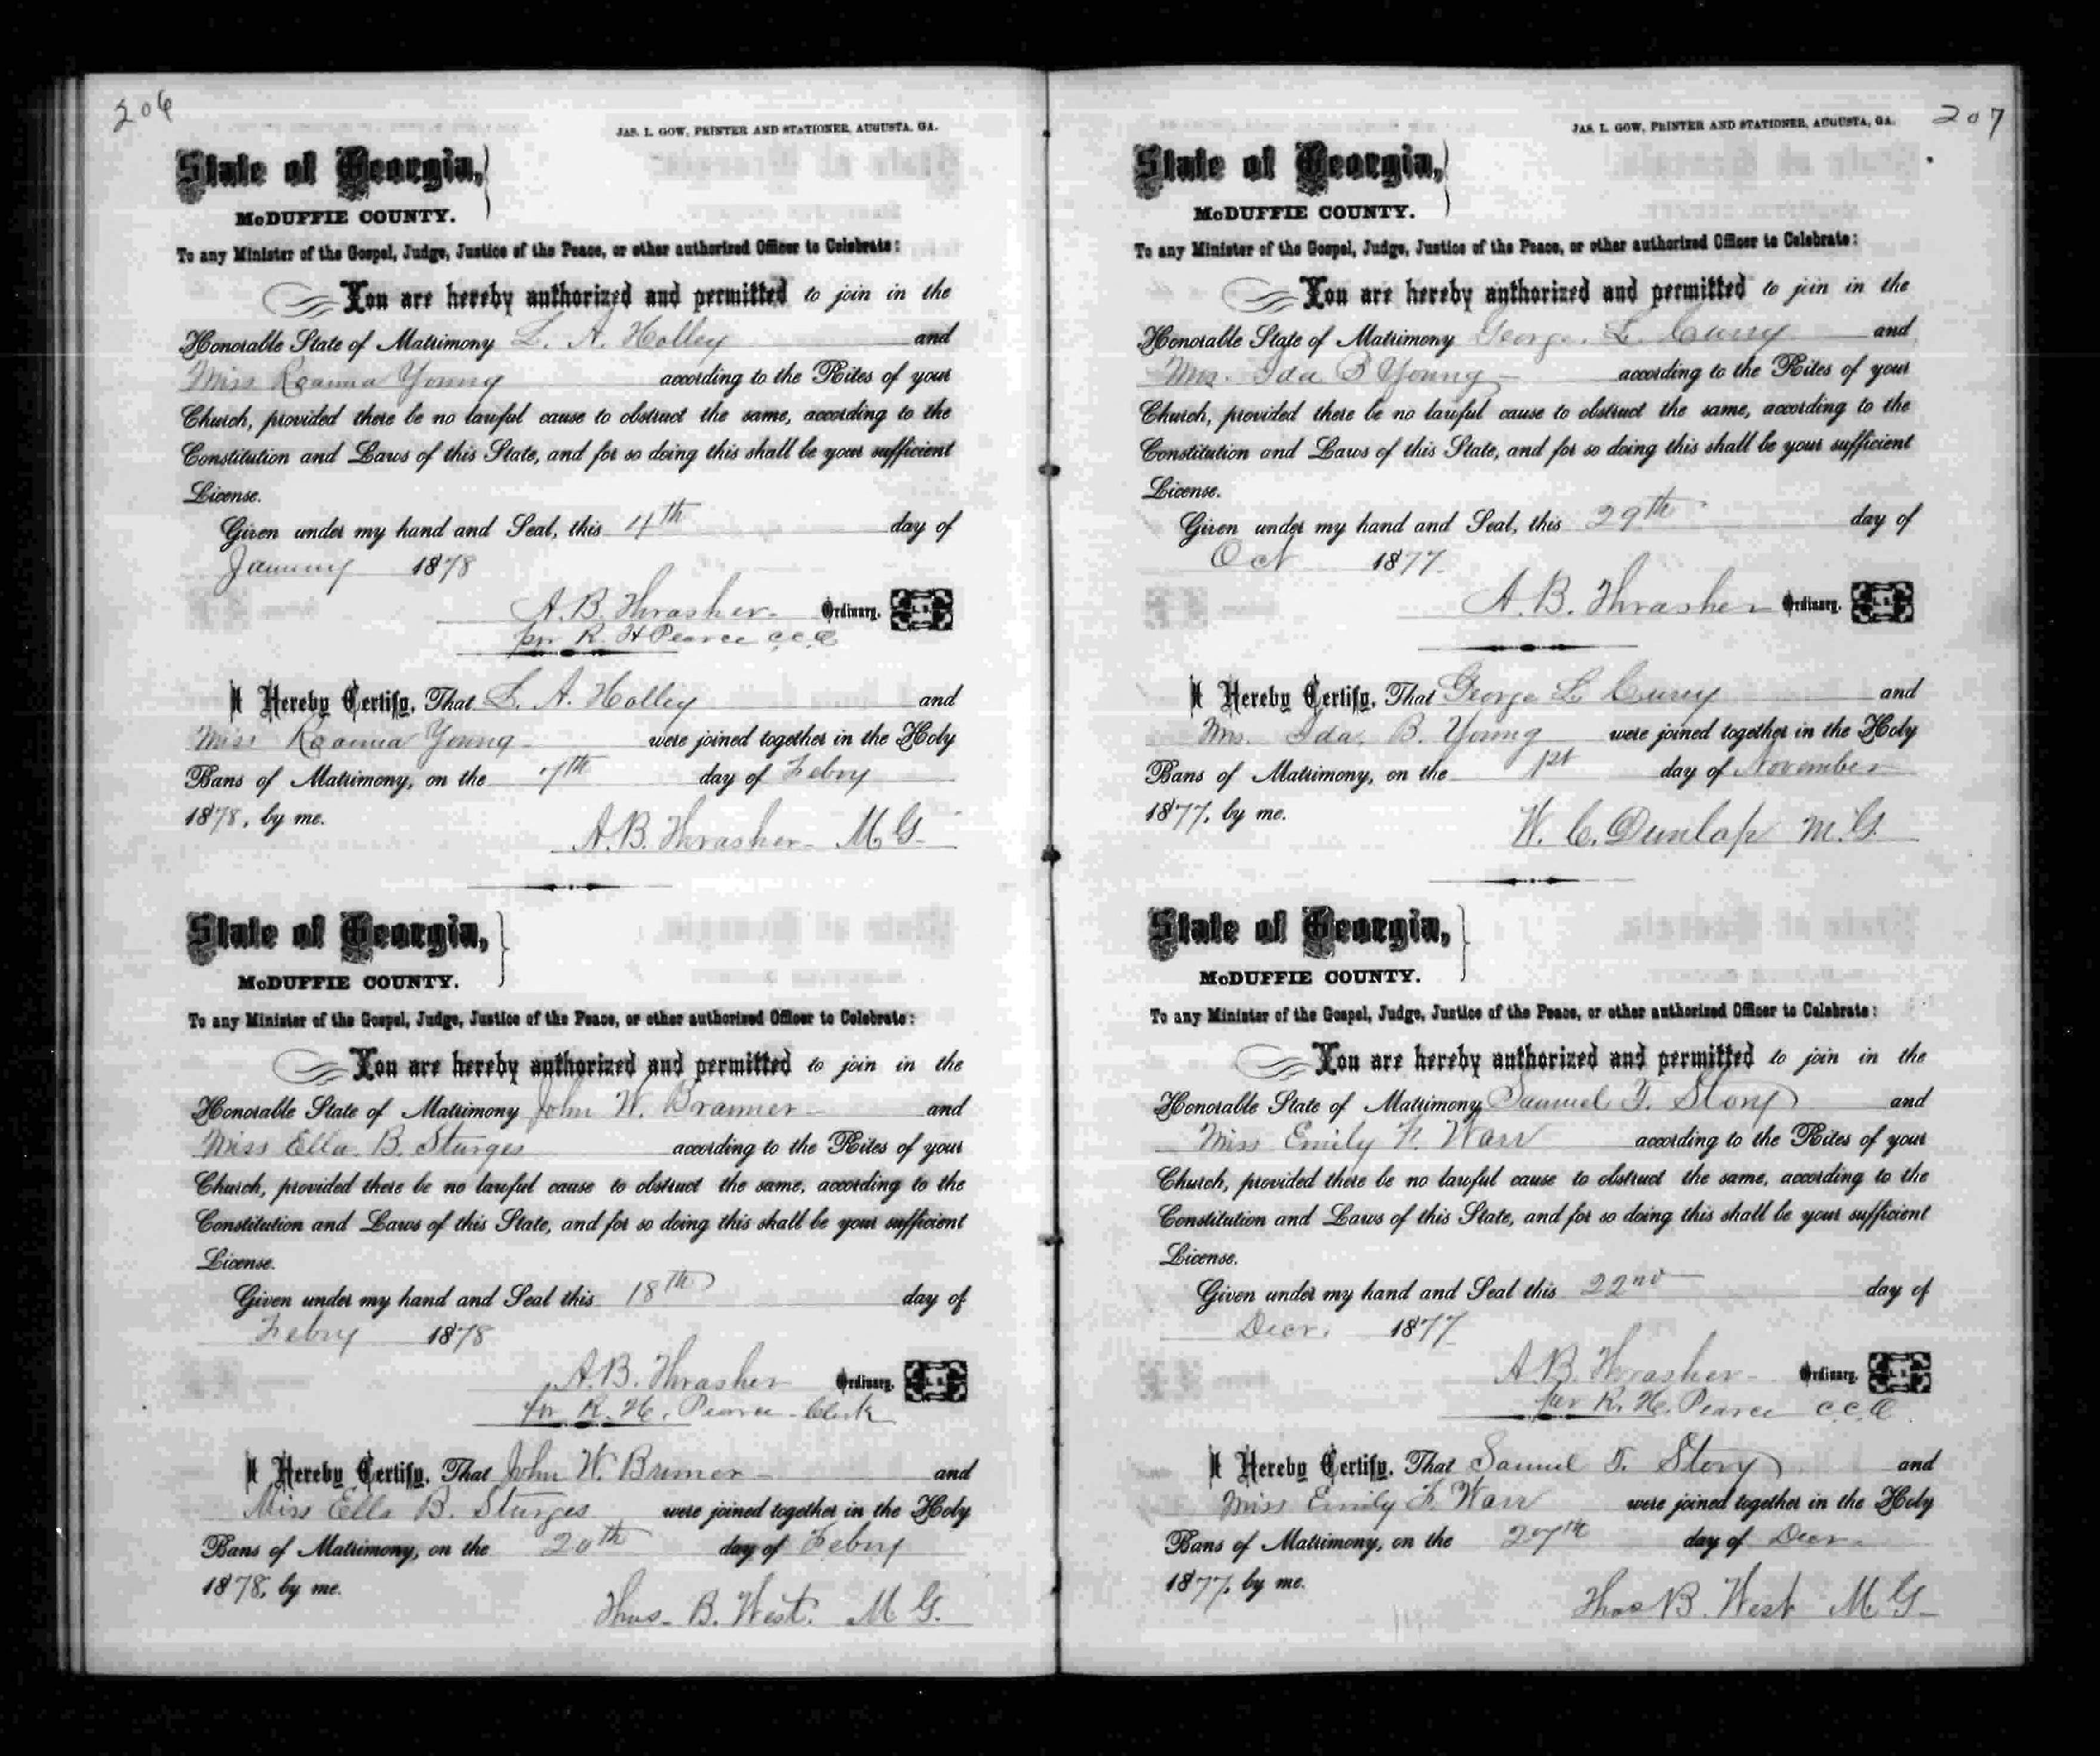 206
JAS. L. GOW, PRINTER AND STATIONER, AUGUSTA, GA.
State of Georgia,
McDUFFIE COUNTY.
To any Minister of the Gospel, Judge, Justice of the Peace, or other authorized Officer to Celebrate:
You are hereby authorized and permitted to join in the
Honorable State of Matrimony L. A. Holley and
Miss Roanna Young according to the Rites of your
Church, provided there be no lawful cause to obstruct the same, according to the
Constitution and Laws of this State, and for so doing this shall be your sufficient
License.
Given under my hand and Seal, this 4th day of
January 1878
A. B. Thrasher Ordinary. L. S.
per R. H Pearce c.c.O
I Hereby Certify, That L. A. Holley and
Miss Roanna Young were joined together in the Holy
Bans of Matrimony, on the 7th day of Febry
1878, by me.
A. B. Thrasher M G
State of Georgia,
McDUFFIE COUNTY.
To any Minister of the Gospel, Judge, Justice of the Peace, or other authorized Officer to Celebrate:
You are hereby authorized and permitted to join in the
Honorable State of Matrimony John W. and
Miss Ella B. Sturges according to the Rites of your
Church, provided there be no lawful cause to obstruct the same, according to the
Constitution and Laws of this State, and for so doing this shall be your sufficient
License.
Given under my hand and Seal this 18th day of
Febry 1878
A. B. Thrasher Ordinary. L. S.
for R. H. Pearce Clerk
I Hereby Certify, That John W. and
Miss Ella B. Sturges were joined together in the Holy
Bans of Matrimony, on the 20th day of Febry
1878, by me.
Thos. B. West. M G.
207
JAS. L. GOW, PRINTER AND STATIONER, AUGUSTA, GA.
State of Georgia,
McDUFFIE COUNTY.
To any Minister of the Gospel, Judge, Justice of the Peace, or other authorized Officer to Celebrate:
You are hereby authorized and permitted to join in the
Honorable State of Matrimony George L. Curry and
Mrs. Ida B Young according to the Rites of your
Church, provided there be no lawful cause to obstruct the same, according to the
Constitution and Laws of this State, and for so doing this shall be your sufficient
License.
Given under my hand and Seal, this 29th day of
Oct 1877
A. B. Thrasher Ordinary. L. S.
I Hereby Certify, That George L Curry and
Mrs. Ida B. Young were joined together in the Holy
Bans of Matrimony, on the 1st day of November
1877, by me.
W. C. Dunlap M. G.
State of Georgia,
McDUFFIE COUNTY.
To any Minister of the Gospel, Judge, Justice of the Peace, or other authorized Officer to Celebrate:
You are hereby authorized and permitted to join in the
Honorable State of Matrimony Samuel T. Story and
Miss Emily F. Warr according to the Rites of your
Church, provided there be no lawful cause to obstruct the same, according to the
Constitution and Laws of this State, and for so doing this shall be your sufficient
License.
Given under my hand and Seal this 22nd day of
Decr. 1877
A. B. Thrasher Ordinary. L. S.
per R. H. Pearce c.c.O
I Hereby Certify, That Samuel T. Story and
Miss Emily F. Warr were joined together in the Holy
Bans of Matrimony, on the 27th day of Decr.
1877, by me.
Thos B. West M G